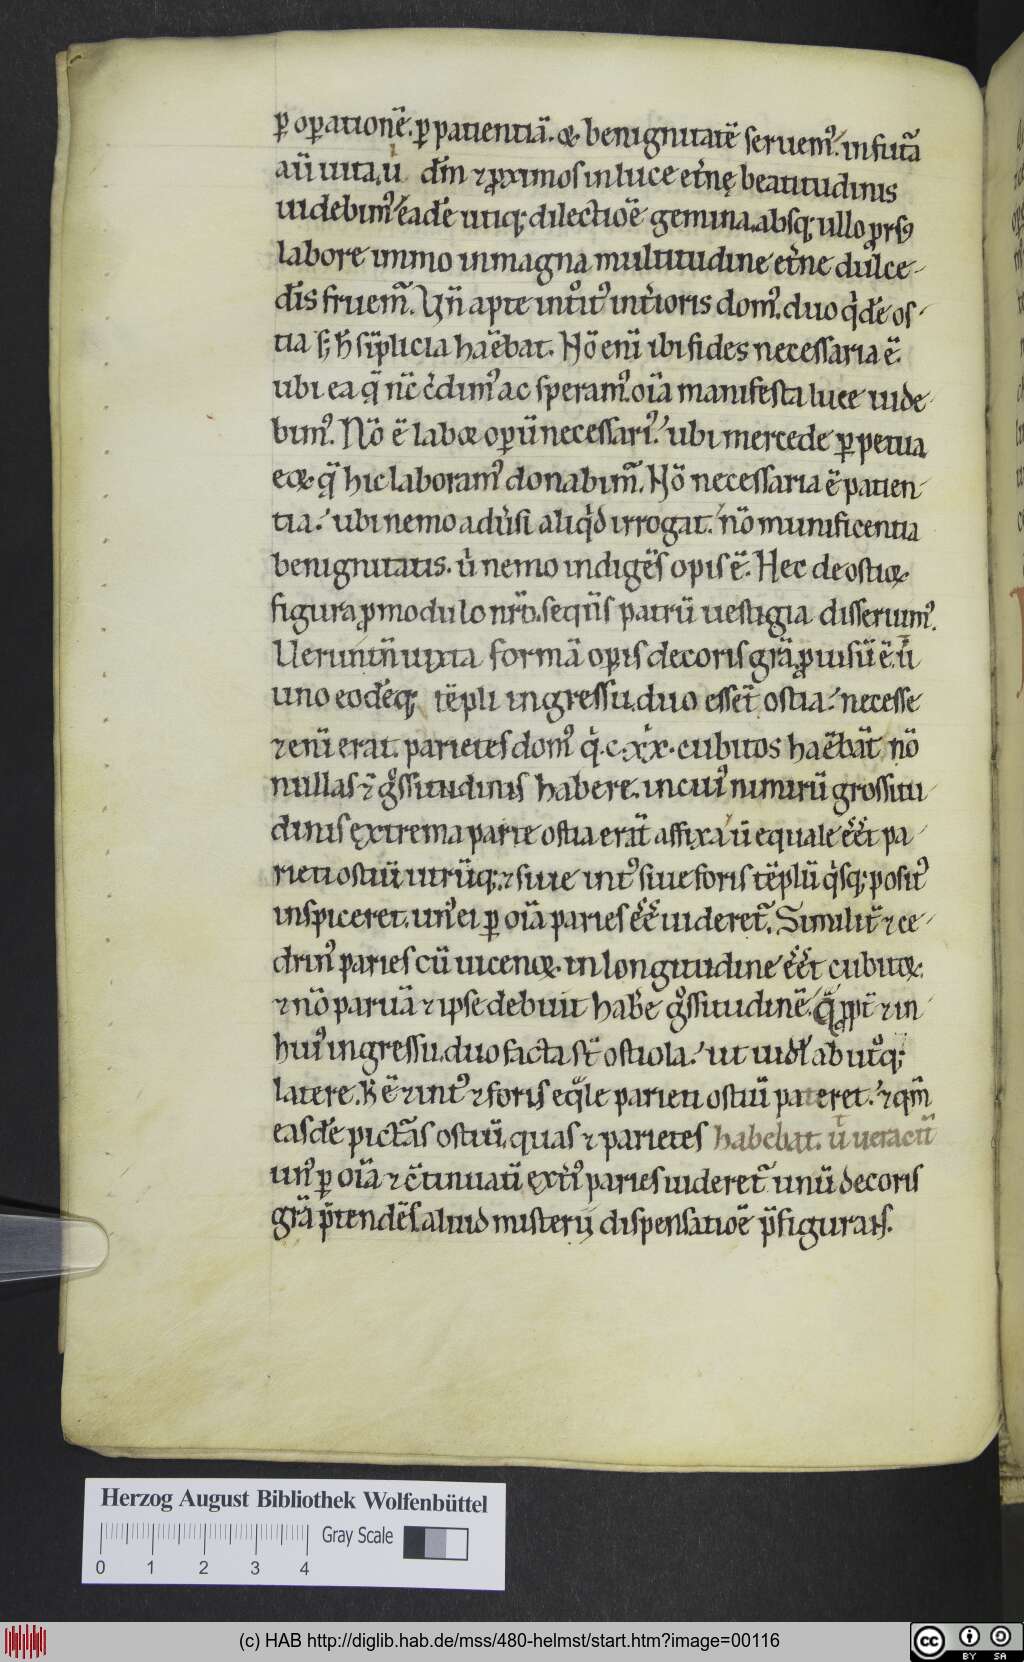 ꝑ oꝑationē. ꝑ patientiā. & benignitatē seruem᷒. in futā
aū uita. ů dm̄ ⁊ ꝓximos in luce et̄nę beatitudinis
uidebim᷒. eadē utiq; dilectioē gemina. absq; ullo ꝓrs᷒
labore immo in magna multitudine et̄ne dulce-
dīs fruem̄. Vn̄ apte int̊it᷒ int̄ioris dom᷒. duo q̇dē os-
tia s; h̄ sīplicia haēbat. Nō eni ibi fides necessaria ē.
ubi ea q̄ nc̄ c̄dim᷒ ac speram᷒. oīa manifesta luce uide-
bim᷒. Nō ē laboꝝ oꝑū necessari᷒. ubi mercede ꝑpetua
eoꝝ q̄ hic laboram᷒ donabim̄. Nō necessaria ē patien-
tia. ubi nemo adůsi aliq̇d irrogat. nō munificentia
benignitatis. ů nemo indigēs opis ē. Hec de ostioꝝ
figura ꝓ modulo nr̄o. seqn̄s patrū uestigia disserum᷒.
Uerūtn̄ iuxta formā oꝑis decoris grā ꝓuisū ē. ů
uno eodēq; tēpli ingressu. duo essēt ostia. necesse
⁊ eni erat. parietes dom᷒ q̇ .c.xx. cubitos haēbāt nō
nullas ⁊ g̊ssitudinis habere. in cui᷒ nimirū grossitu-
dinis extrema parte ostia erāt affixa. ů equale eēt pa-
rieti ostiū utrūq; ⁊ siue int᷒ siue foris tēplū q̇sq; posit᷒
inspiceret. un᷒ ei ꝑ oīa paries eē uideret̄. Similit̄ ⁊ ce-
drin᷒ paries cū uicenoꝝ. in longitudine eēt cubitoꝝ.
⁊ nō paruā ⁊ ipse debuit habē g̊ssitudinē. q̄ꝓpt̄ ⁊ in
hui᷒ ingressu. duo facta st̄ ostiola. ut uidl̄ ab ut̊q;
latere. ⁊ int᷒ ⁊ foris eq̄le parieti ostiū pateret. ⁊ qm̄
easdē picturas ostiū. quas ⁊ parietes habebat. ů
un᷒ ꝑ oīa ⁊ c̄tinuatū ext̄i᷒ paries uideret̄. unū decoris
grā p̄tendēs. aliud misterii dispensatioē p̄figurans.
Herzog August Bibliothek Wolfenbüttel
Gray Scale
0 1 2 3 4
(c) HAB http://diglib.hab.de/mss/480-helmst/start.htm?image=00116
cc BY SA